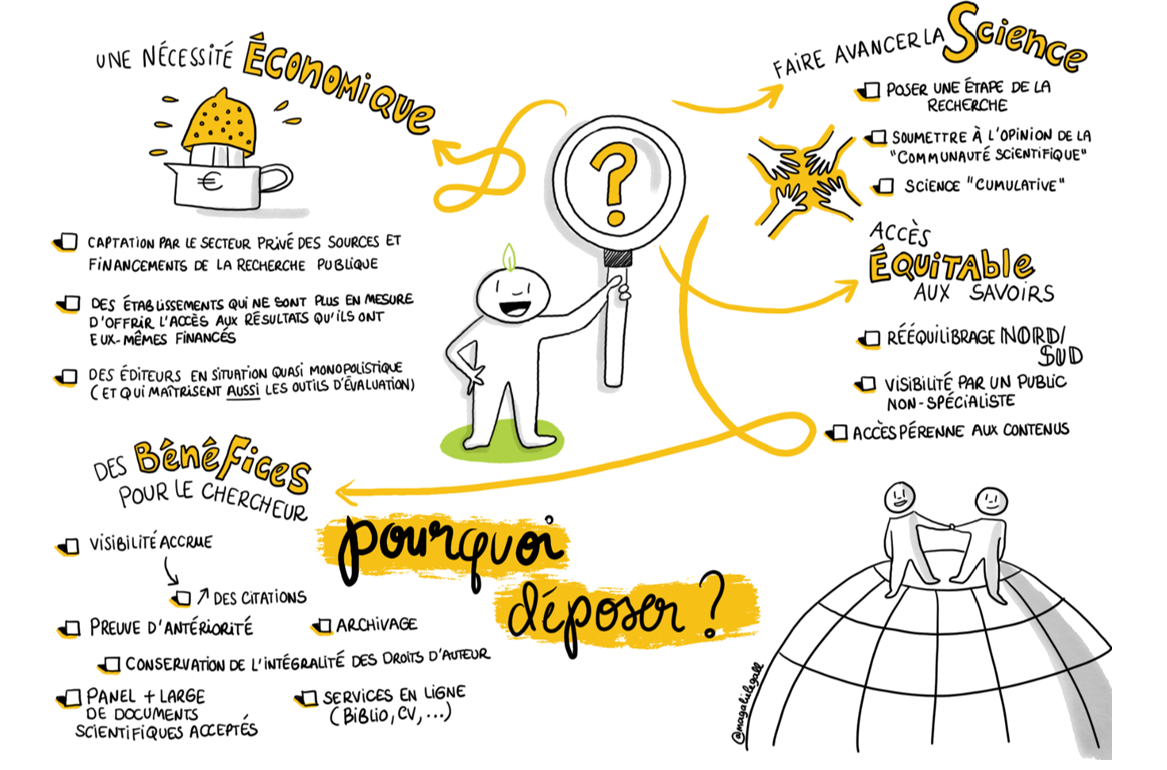 UNE NÉCESSITÉ ÉCONOMIQUE
€
CAPTATION PAR LE SECTEUR PRIVÉ DES SOURCES ET
FINANCEMENTS DE LA RECHERCHE PUBLIQUE
DES ÉTABLISSEMENTS QUI NE SONT PLUS EN MESURE
D'OFFRIR L'ACCÈS AUX RÉSULTATS QU'ILS ONT
EUX-MÊMES FINANCÉS
DES ÉDITEURS EN SITUATION QUASI MONOPOLISTIQUE
(ET QUI MAÎTRISENT AUSSI LES OUTILS D'ÉVALUATION)
?
FAIRE AVANCER LA Science
POSER UNE ÉTAPE DE LA
RECHERCHE
SOUMETTRE À L'OPINION DE LA
"COMMUNAUTÉ SCIENTIFIQUE"
SCIENCE "CUMULATIVE"
ACCÈS
ÉQUITABLE
AUX SAVOIRS
RÉÉQUILIBRAGE NORD/
SUD
VISIBILITÉ PAR UN PUBLIC
NON-SPÉCIALISTE
ACCÈS PÉRENNE AUX CONTENUS
DES BÉNÉFICES
POUR LE CHERCHEUR
VISIBILITÉ ACCRUE
↗ DES CITATIONS
PREUVE D'ANTÉRIORITÉ
ARCHIVAGE
CONSERVATION DE L'INTÉGRALITÉ DES DROITS D'AUTEUR
PANEL + LARGE
DE DOCUMENTS
SCIENTIFIQUES ACCEPTÉS
SERVICES EN LIGNE
(BIBLIO, CV, ...)
pourquoi
déposer ?
@magalielegall